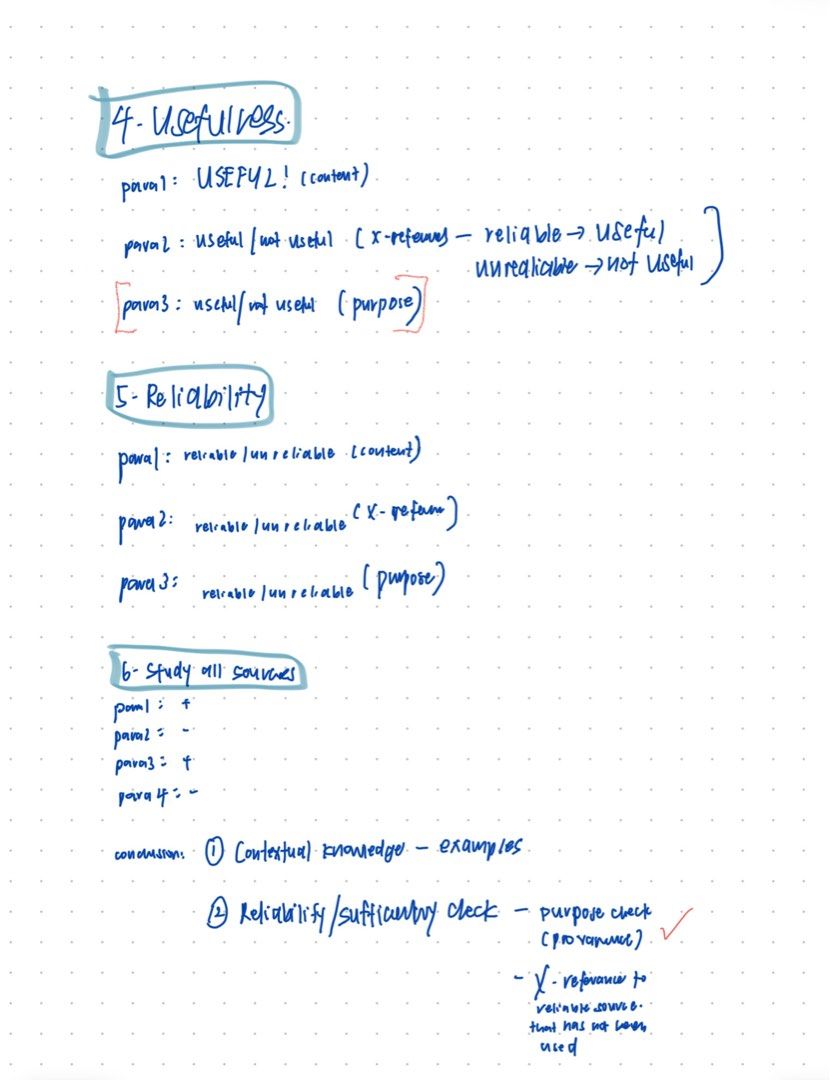 4- Usefulness.
para1: USEFUL! (content)
para2: useful/not useful (x-reference – reliable → useful
unrealiable → not useful)
[para3: useful/not useful (purpose)]
5- Reliability
para1: reliable/unreliable (content)
para2: reliable/unreliable (x-reference)
para3: reliable/unreliable (purpose)
6- Study all sources
para1: +
para2: -
para3: +
para4: -
conclusion: ① Contextual knowledge – examples
② Reliability/sufficiency check – purpose check
(provenance) ✓
- X-reference to
reliable source.
that has not been
used